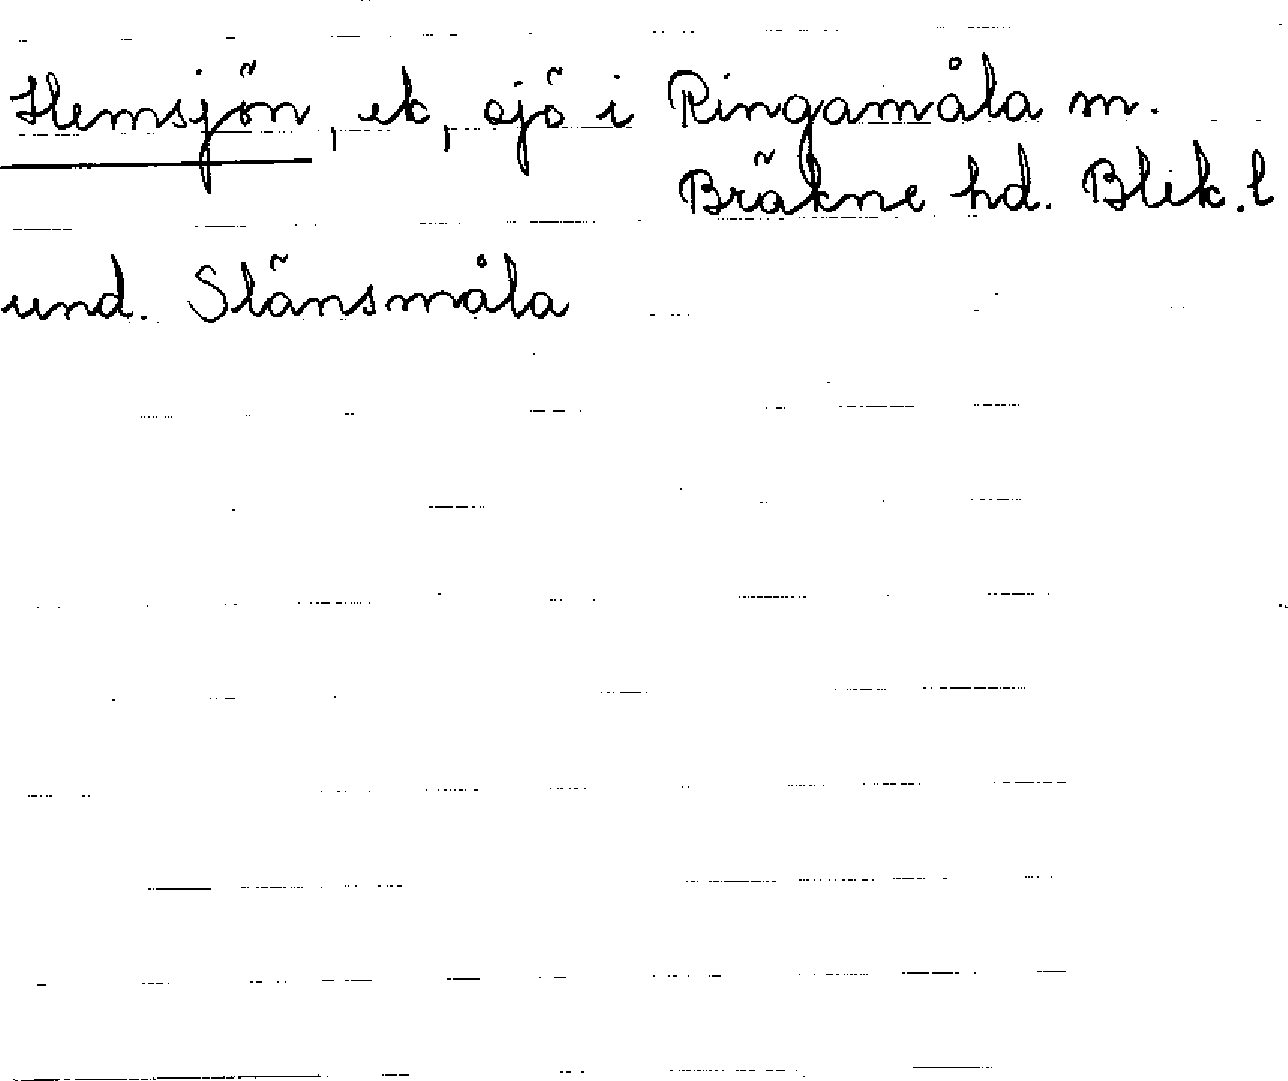 Hemsjön, ek, sjö i Ringamåla m.
Bräkne hd. Blek. l
und. Slänsmåla